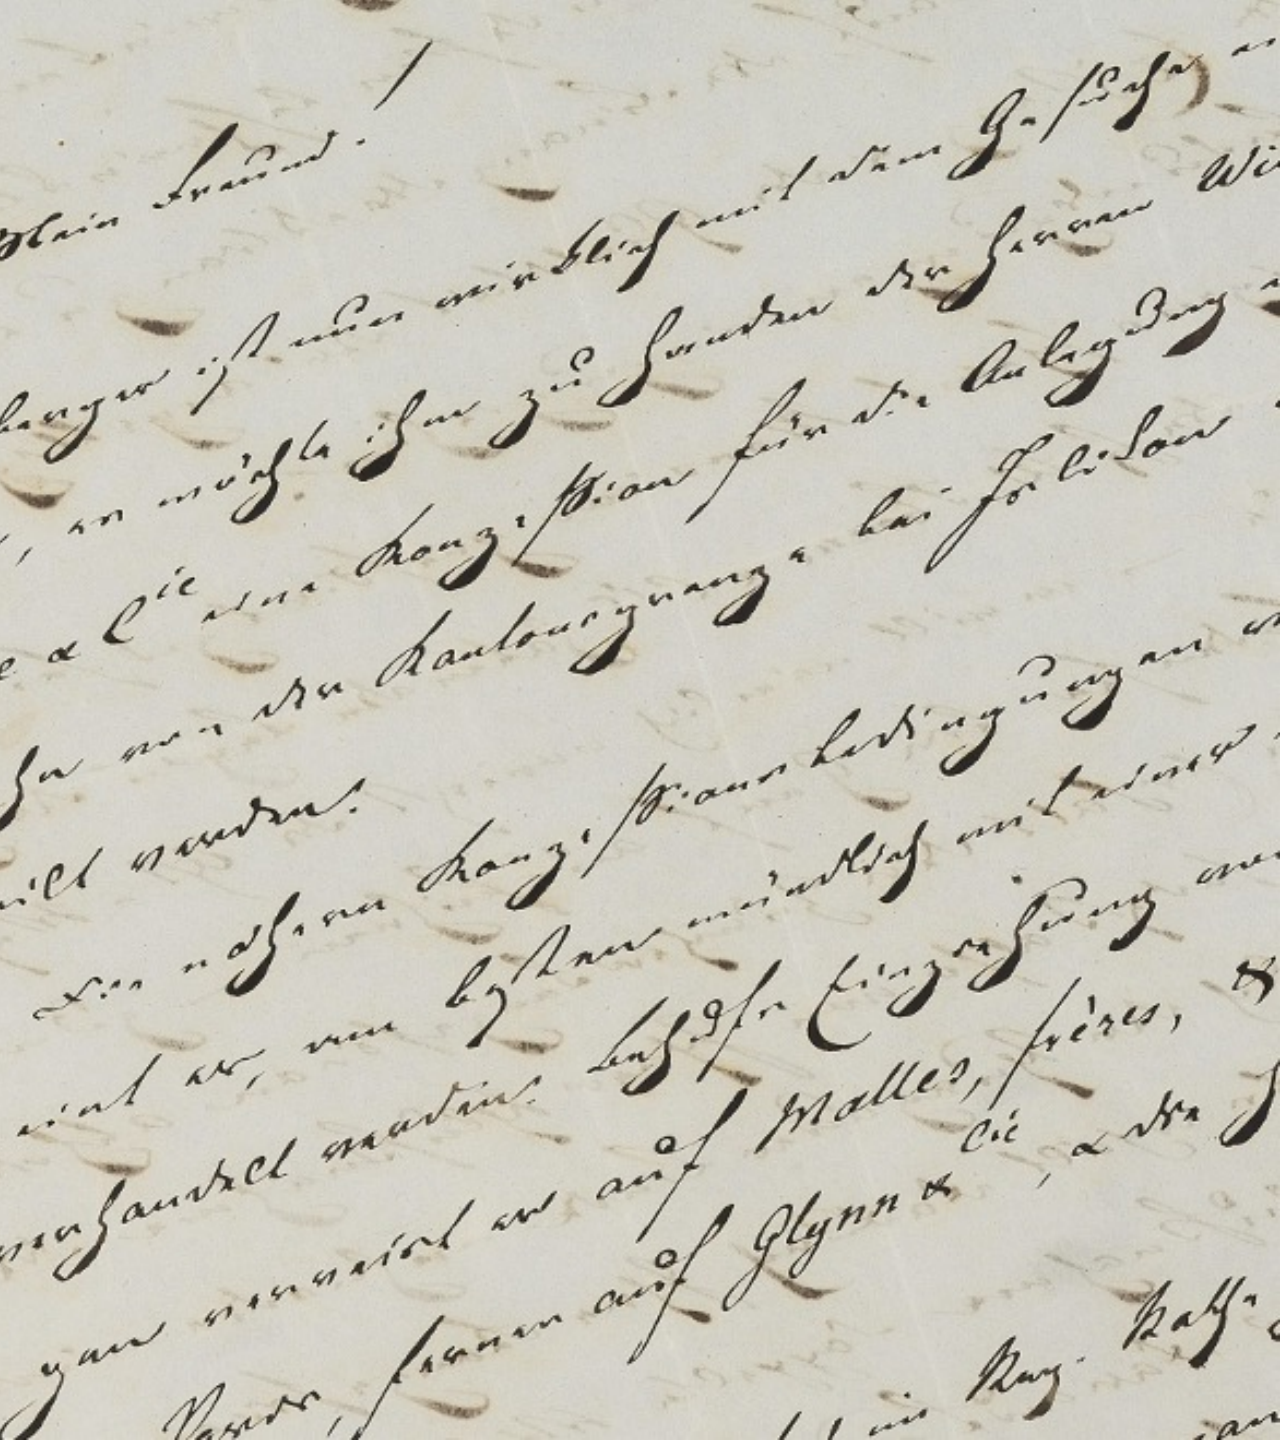 Mein Freund!
berger ist nun wirklich mit dem Gesuche
, er möchte ihm zu Handen der Herren
& Cie eine Konzession für die Anlegung
von der Kantonsgrenze bei Islikon
werden.
Die nähern Konzessionsbedingungen
er, am besten mündlich mit einer
verhandelt werden. Behufs Einziehung
gen verweist er auf Malles, frères, &
Paris, ferner auf Glynn & Cie, & die
im Reg. Rathe